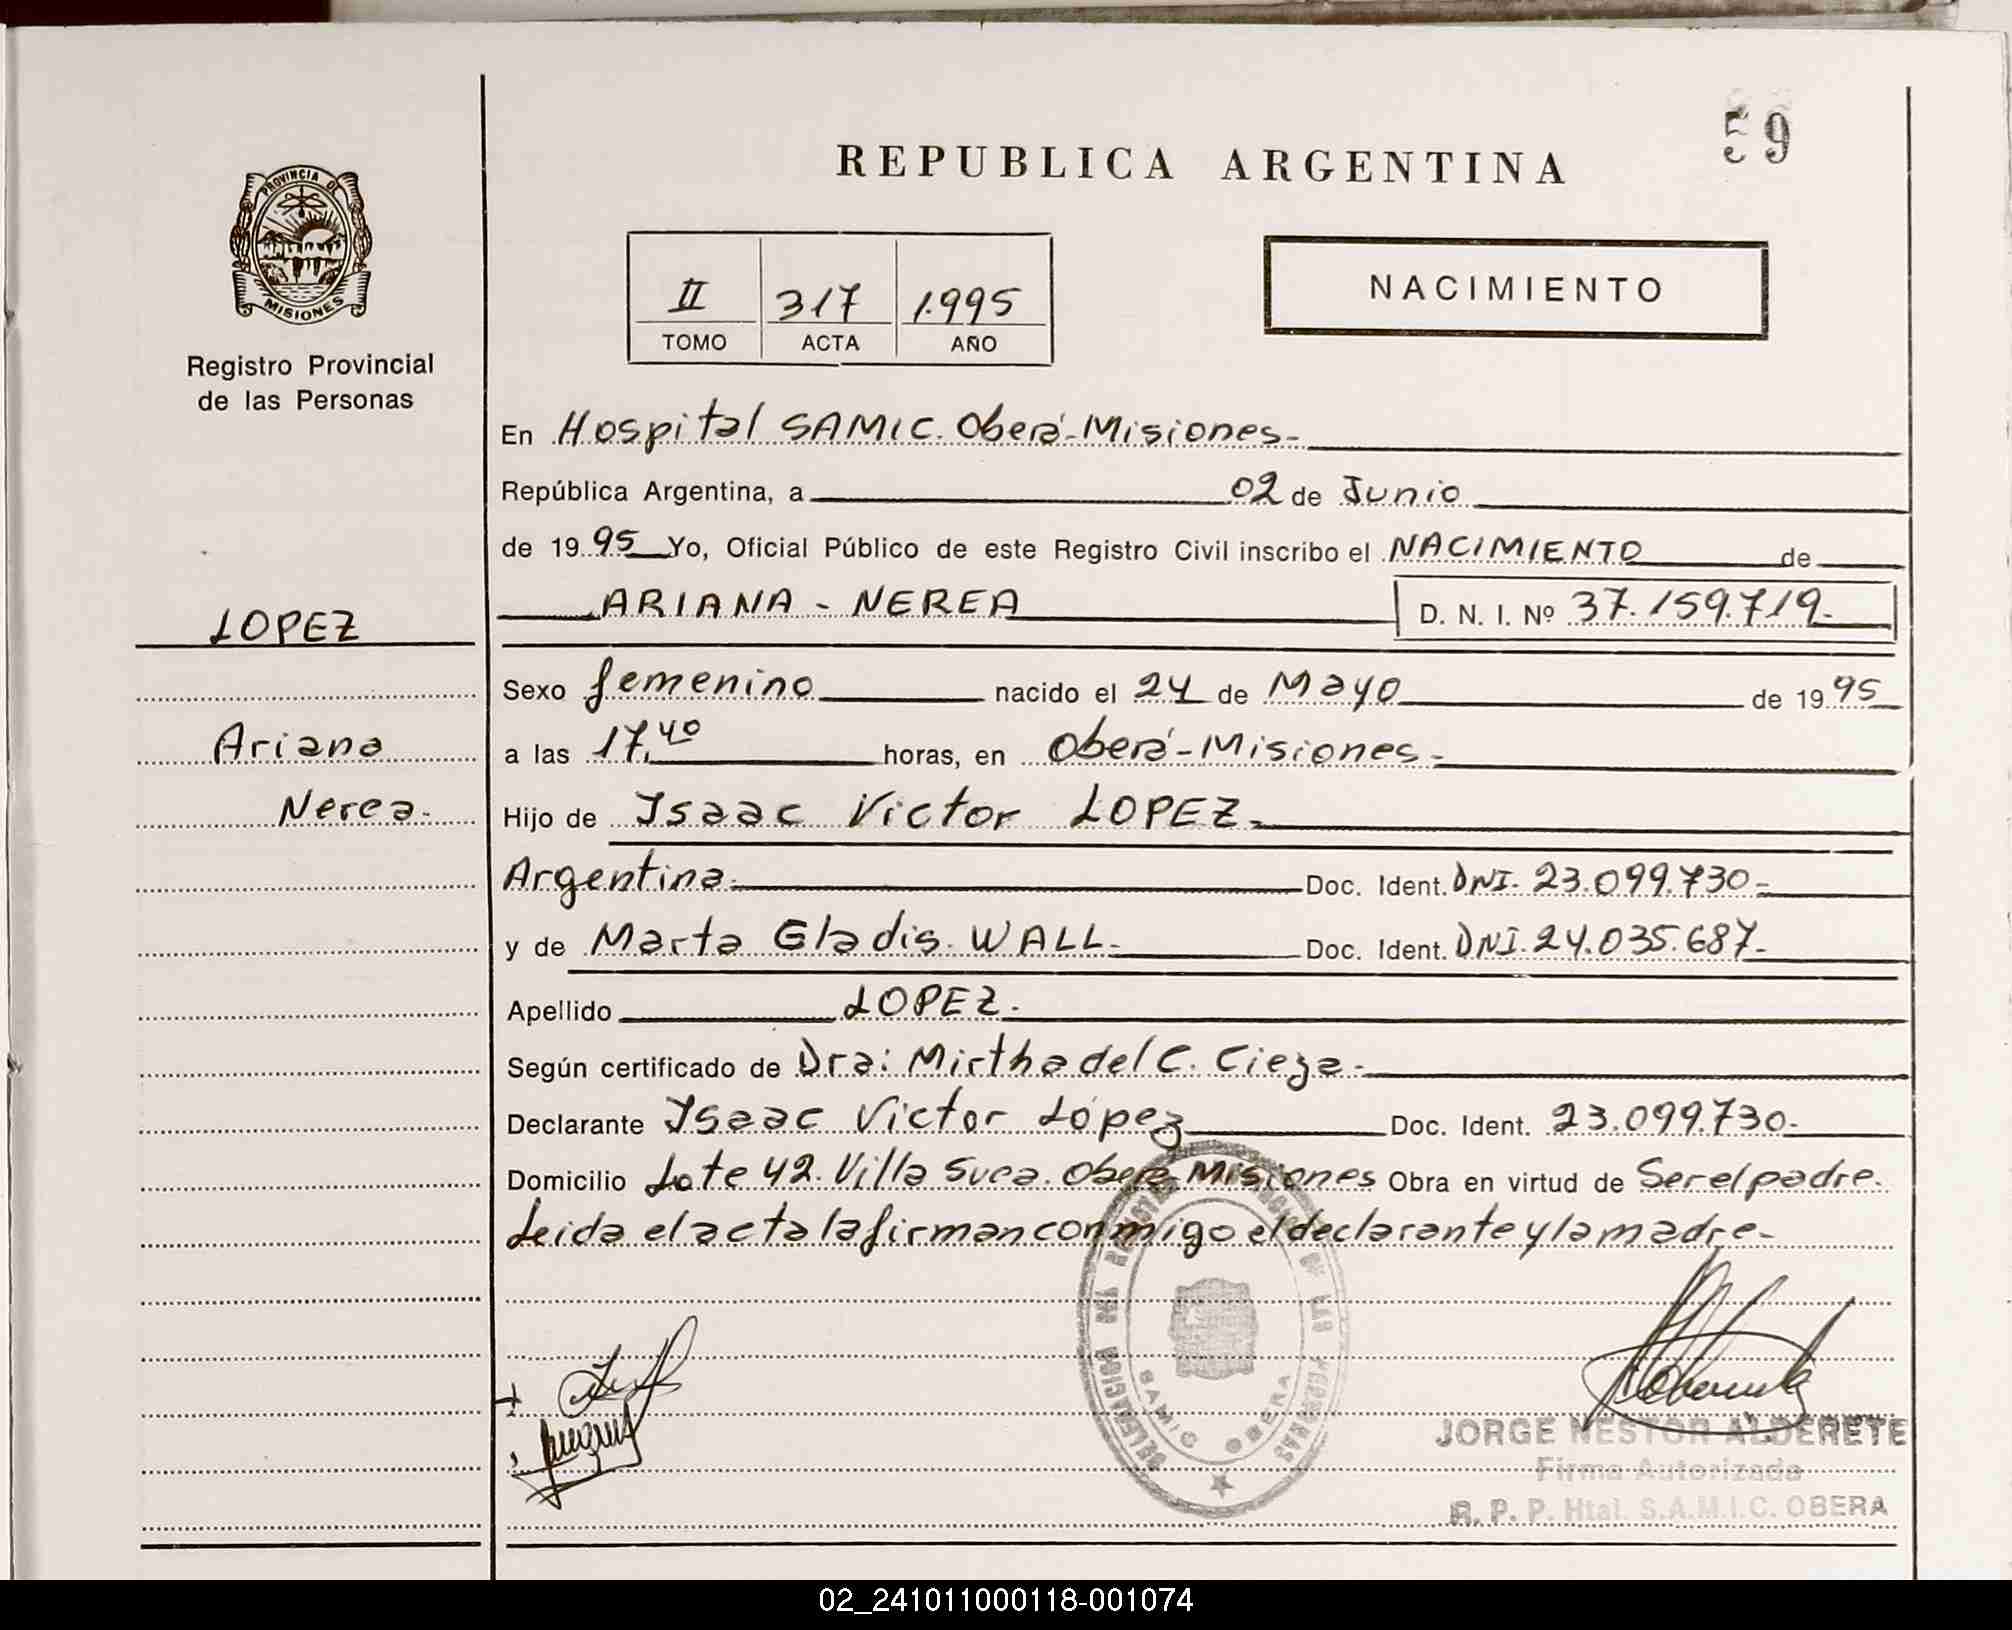 59
REPUBLICA ARGENTINA
PROVINCIA DE
MISIONES
Registro Provincial
de las Personas
II 317 1.995
TOMO ACTA AÑO
NACIMIENTO
En Hospital SAMIC. Oberá-Misiones-
República Argentina, a 02 de Junio
de 19 95 Yo, Oficial Público de este Registro Civil inscribo el NACIMIENTO de
LOPEZ
ARIANA - NEREA D. N. I. Nº 37.159.719.-
Sexo femenino nacido el 24 de Mayo de 19 95
Ariana
a las 17,40 horas, en Oberá-Misiones-
Nerea.
Hijo de Isaac Victor LOPEZ-
Argentina- Doc. Ident. DNI. 23.099.730-
y de Marta Gladis WALL- Doc. Ident. DNI. 24.035.687-
Apellido LOPEZ.
Según certificado de Dra: Mirtha del C. Cieza-
Declarante Isaac Victor López Doc. Ident. 23.099.730-
Domicilio Lote 42. Villa Svea. Oberá-Misiones Obra en virtud de Ser el padre.
Leida el acta la firman conmigo el declarante y la madre-
SAMIC OBERA
JORGE NESTOR ALDERETE
Firma Autorizada
R. P. P. Htal. S.A.M.I.C. OBERA
02_241011000118-001074